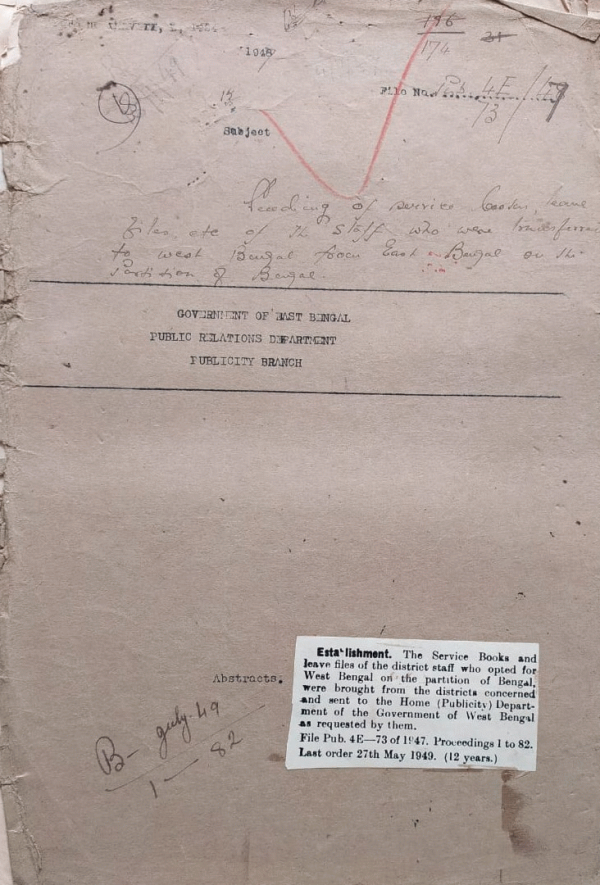 196
174
31
1948
File No. Pub. 4E/47
73
Subject
of service books, leave
files etc of the staff who were transferred
to west Bengal from East Bengal on the
Partition of Bengal.
GOVERNMENT OF EAST BENGAL
PUBLIC RELATIONS DEPARTMENT
PUBLICITY BRANCH
Abstracts.
Establishment. The Service Books and
leave files of the district staff who opted for
West Bengal on the partition of Bengal,
were brought from the districts concerned
and sent to the Home (Publicity) Depart-
ment of the Government of West Bengal
as requested by them.
File Pub. 4E—73 of 1947. Proceedings 1 to 82.
Last order 27th May 1949. (12 years.)
B— July-49
1 — 82